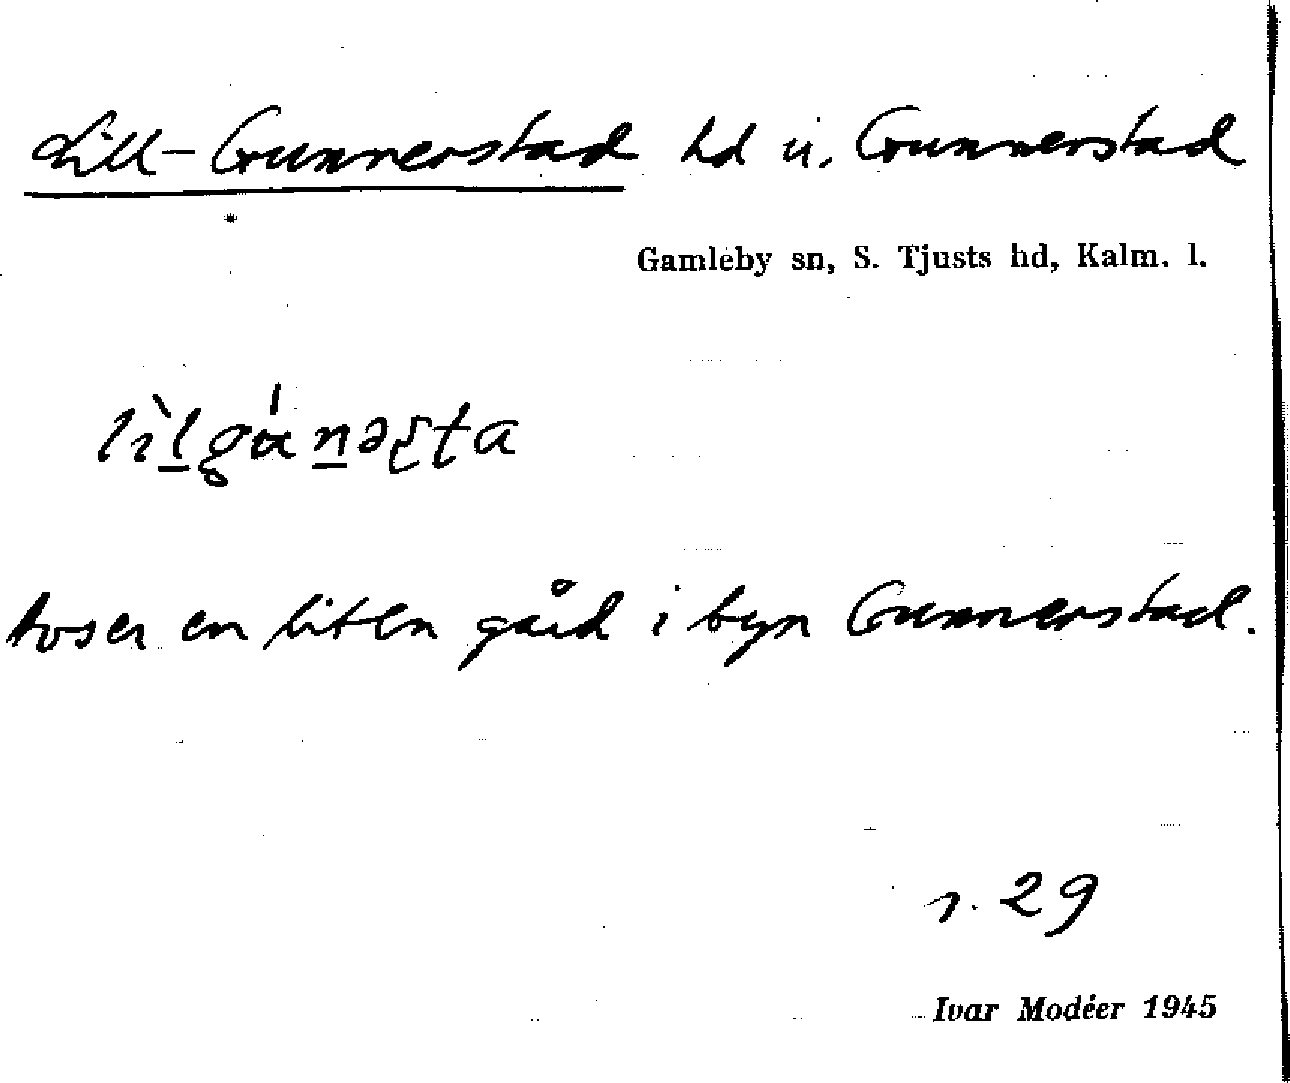 Lill-Gunnerstad hd u. Gunnerstad
Gamleby sn, S. Tjusts hd, Kalm. l.
avser en liten gård i byn Gunnerstad.
s. 29
Ivar Modéer 1945